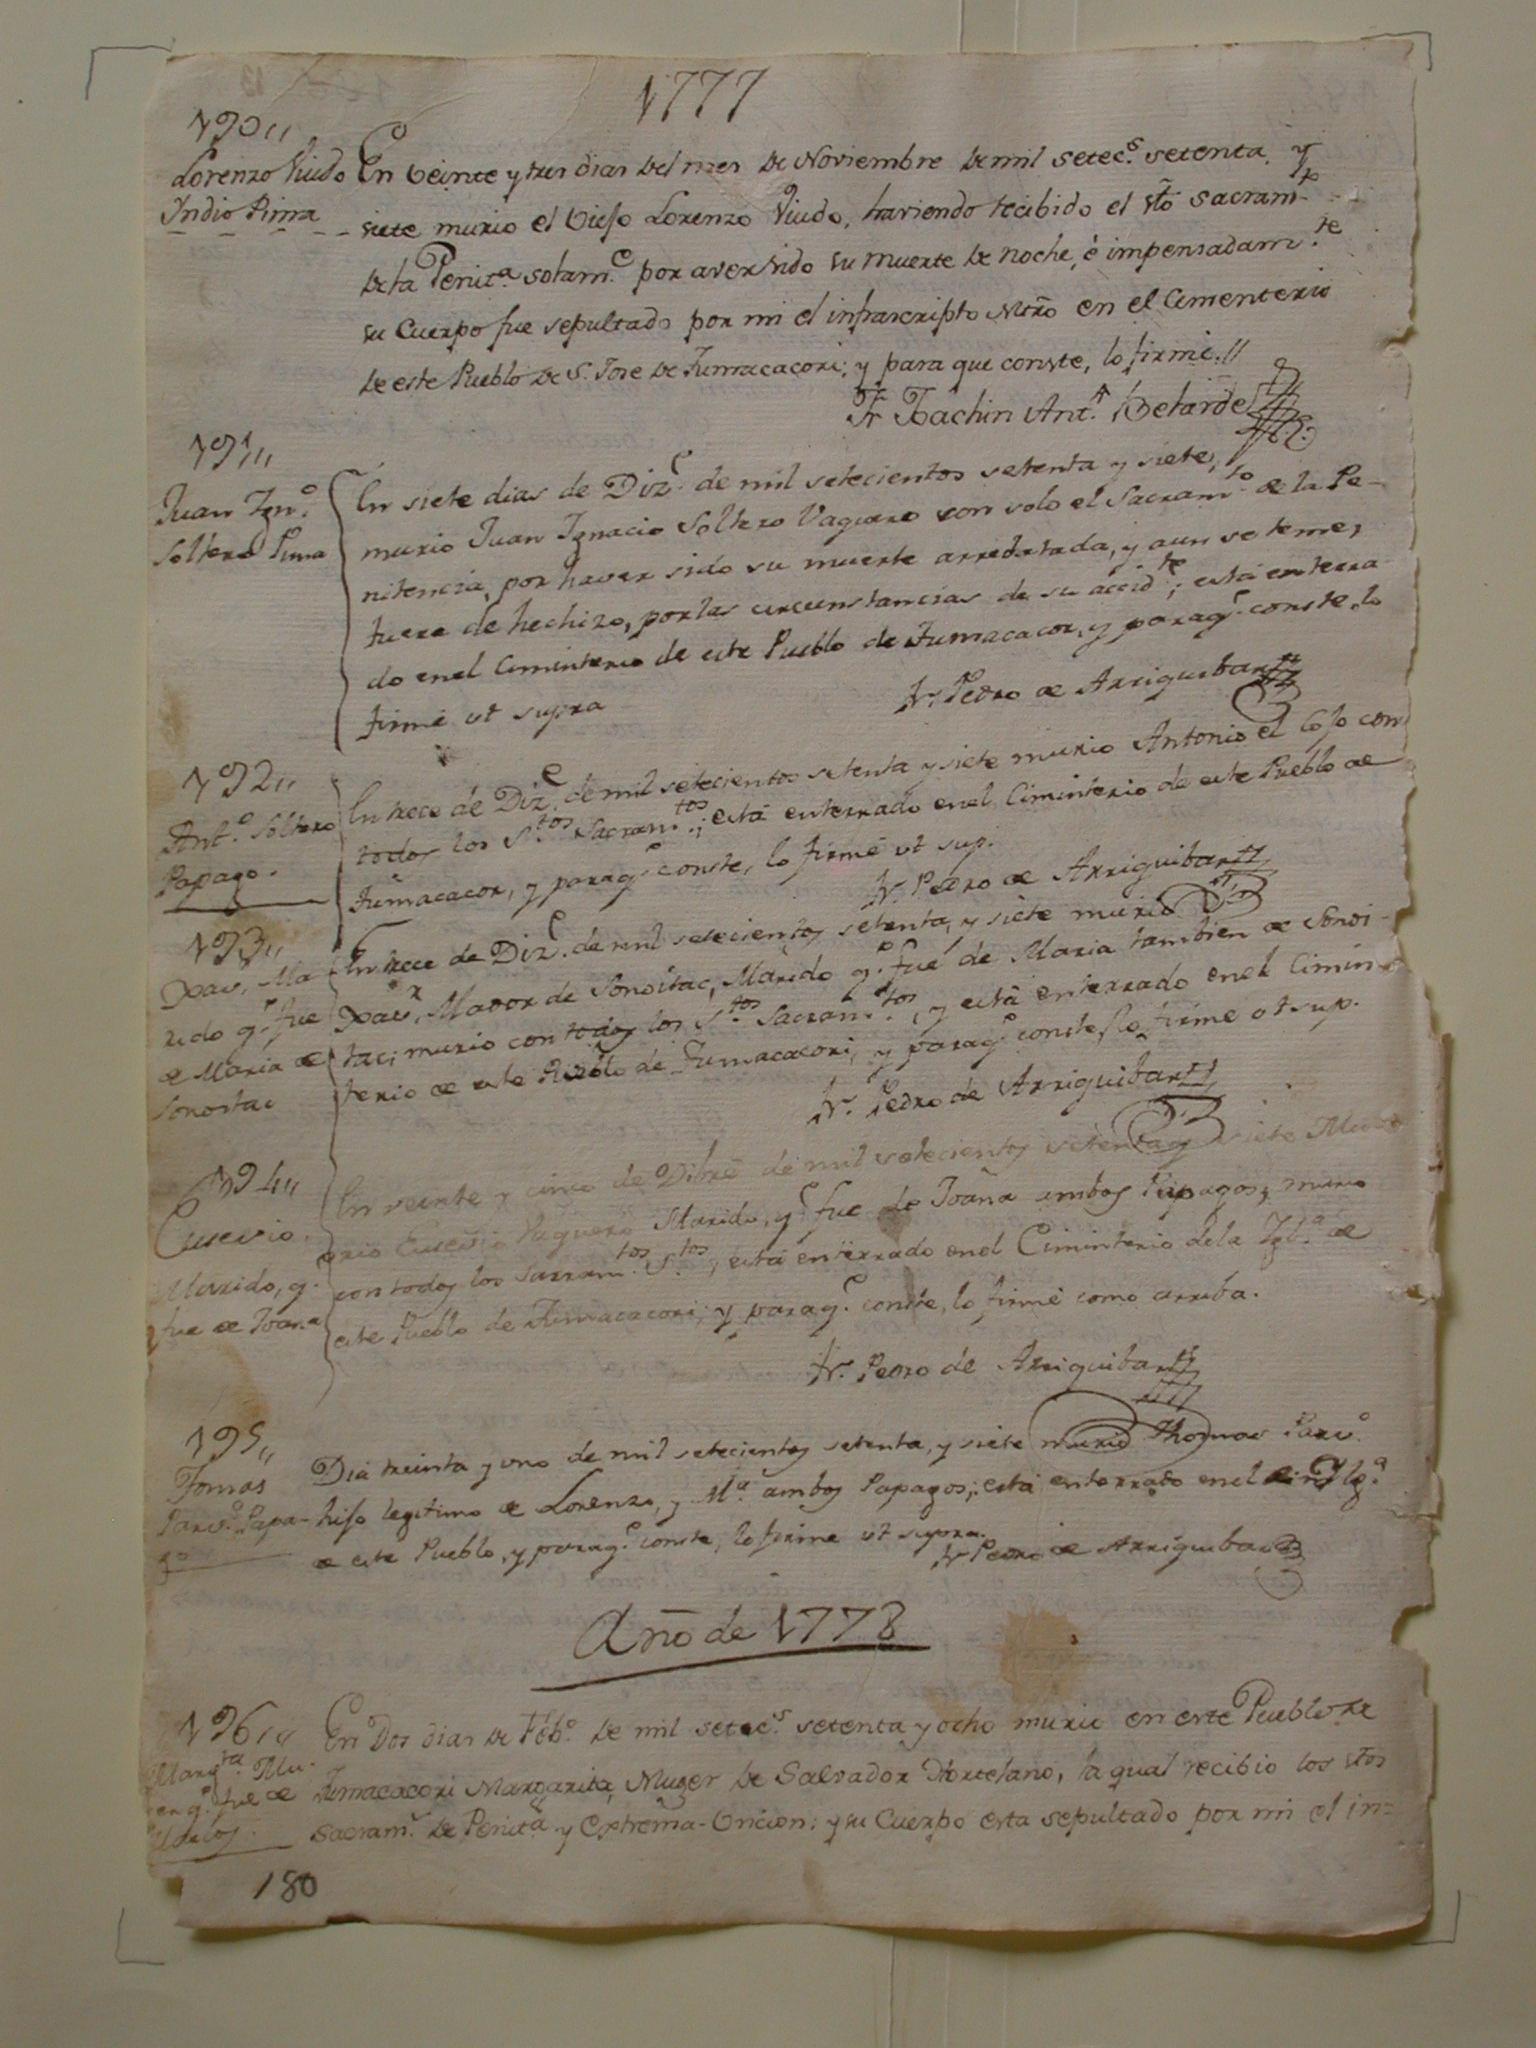 1777
190,,
Lorenzo Viudo
Indio Pima
En veinte y tres dias del mes de Noviembre de mil setec.s setenta y
siete murio el viejo Lorenzo Viudo, haviendo recibido el Sto Sacram.to
de la Penit.a solam.e por aver sido su muerte de noche, è impensadam.te
su Cuerpo fue sepultado por mi el infrascripto Mtro en el Cementerio
de este Pueblo de S. Jose de Tumacacori; y para que conste, lo firmè.//
Fr Joachin Ant.º Belarde
191,,,
Juan Ign.º
Soltero Pima
En siete dias de Diz.e de mil setecientos setenta y siete,
murio Juan Ignacio Soltero Vaquero con solo el Sacram.to de la Pe-
nitencia, por haver sido su muerte arrebatada, y aun se teme,
fuera de hechizo, por las circunstancias de su accid.te; està enterra
do en el Ciminterio de este Pueblo de Tumacacor, y para q.e conste, lo
firmè ut supra
Fr. Pedro de Arriquibar
192,,
Ant.º Soltero
Papago.
En trece de Diz.e de mil setecientos setenta y siete murio Antonio el Cojo con
todos los S.tos Sacram.tos; està enterrado en el Ciminterio de este Pueblo de
Tumacacor, y para q.e conste, lo firmè ut sup.
Fr. Pedro de Arriquibar
193,,
Xav.r Ma
rido q.e fue
de Maria de
Sonoitac
En trece de Diz.e de mil setecientos setenta, y siete murio
Xav.r Mador de Sonoitac, Marido q.e fuè de Maria tambien de Sonoi-
tac; murio con todos los S.tos Sacram.tos, y està enterrado en el Cimin-
terio de este Pueblo de Tumacacori, y para q.e conste lo firmè ut sup.
Fr. Pedro de Arriquibar
194,,
Eusevio
Marido, q.e
fue de Joana
En veinte y cinco de Dibrē de mil setecientos setenta y siete Mu
rio Eusevio Vaquero Marido, q.e fue de Joana ambos Papagos; murio
con todos los Sacram.tos S.tos, està enterrado en el Ciminterio de la Igl.a de
este Pueblo de Tumacacori; y para q.e conste, lo firmè como arriba.
Fr. Pedro de Arriquibar
195,,
Tomas
Parv.º Papa-
go
Dia treinta y uno de mil setecientos setenta, y siete murio Thomas Parv.º
hijo legitimo de Lorenzo, y M.a ambos Papagos; està enterrado en el Igl.a
de este Pueblo, y para q.e conste, lo firme ut supra.
Fr Pedro de Arriquibar
Año de 1778
196,,
Marg.ta Mu-
ger q.e fue de
En Dos dias de Feb.º de mil setec.s setenta y ocho murio en este Pueblo de
Tumacacori Margarita, Muger de Salvador Hortelano, la qual recibio los Stos
Sacram.s de Penit.a y Extrema-Uncion; y su Cuerpo esta sepultado por mi el in=
180